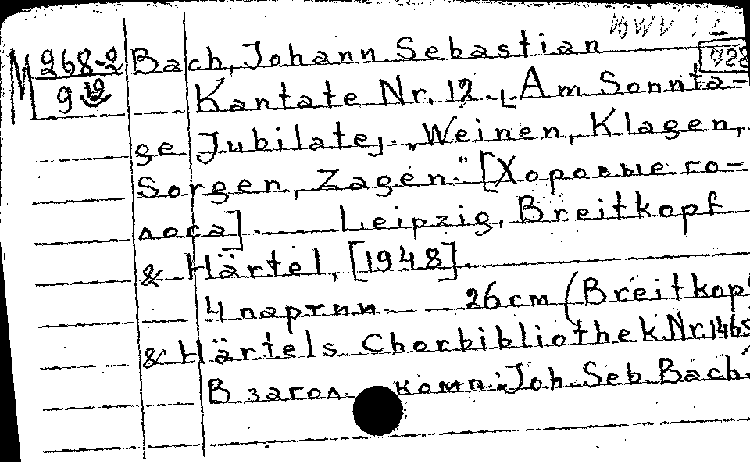 BWV 12
M 268-2 Bach, Johann Sebastian
9 Kantate Nr. 12. [Am Sonnta-
ge Jubilate]. „Weinen, Klagen,
Sorgen, Zagen." [Хоровые го-
лоса]. Leipzig, Breitkopf
& Härtel, [1948].
4 партии. 26 cm (Breitkopf
& Härtels Chorbibliothek Nr. 1465
В загол. комп: Joh. Seb. Bach.